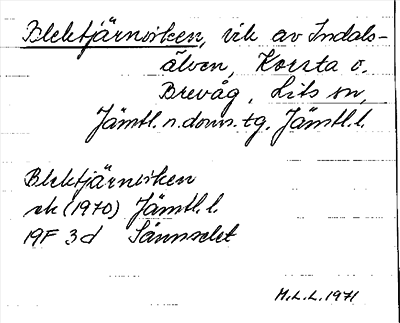 Blektjärnviken, vik av Indals-
älven, Korsta o.
Brevåg, Lits sn,
Jämtl. n. doms. tg, Jämtl. l.
Blektjärnviken
ek (1970) Jämtl. l.
19F 3d
M.L.L. 1971